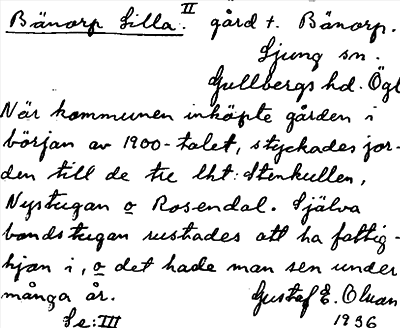 Bänorp Lilla. II gård t. Bänorp.
Ljung sn.
Gullbergs hd. Ögl
När kommunen inköpte gården i
början av 1900-talet, styckades jor-
den till de tre lht: Stenkullen,
Nystugan o Rosendal. Själva
bondstugan rustades att ha fattig-
hjon i, o det hade man sen under
många år.
Gustaf E. Olvan
Se: III
1936